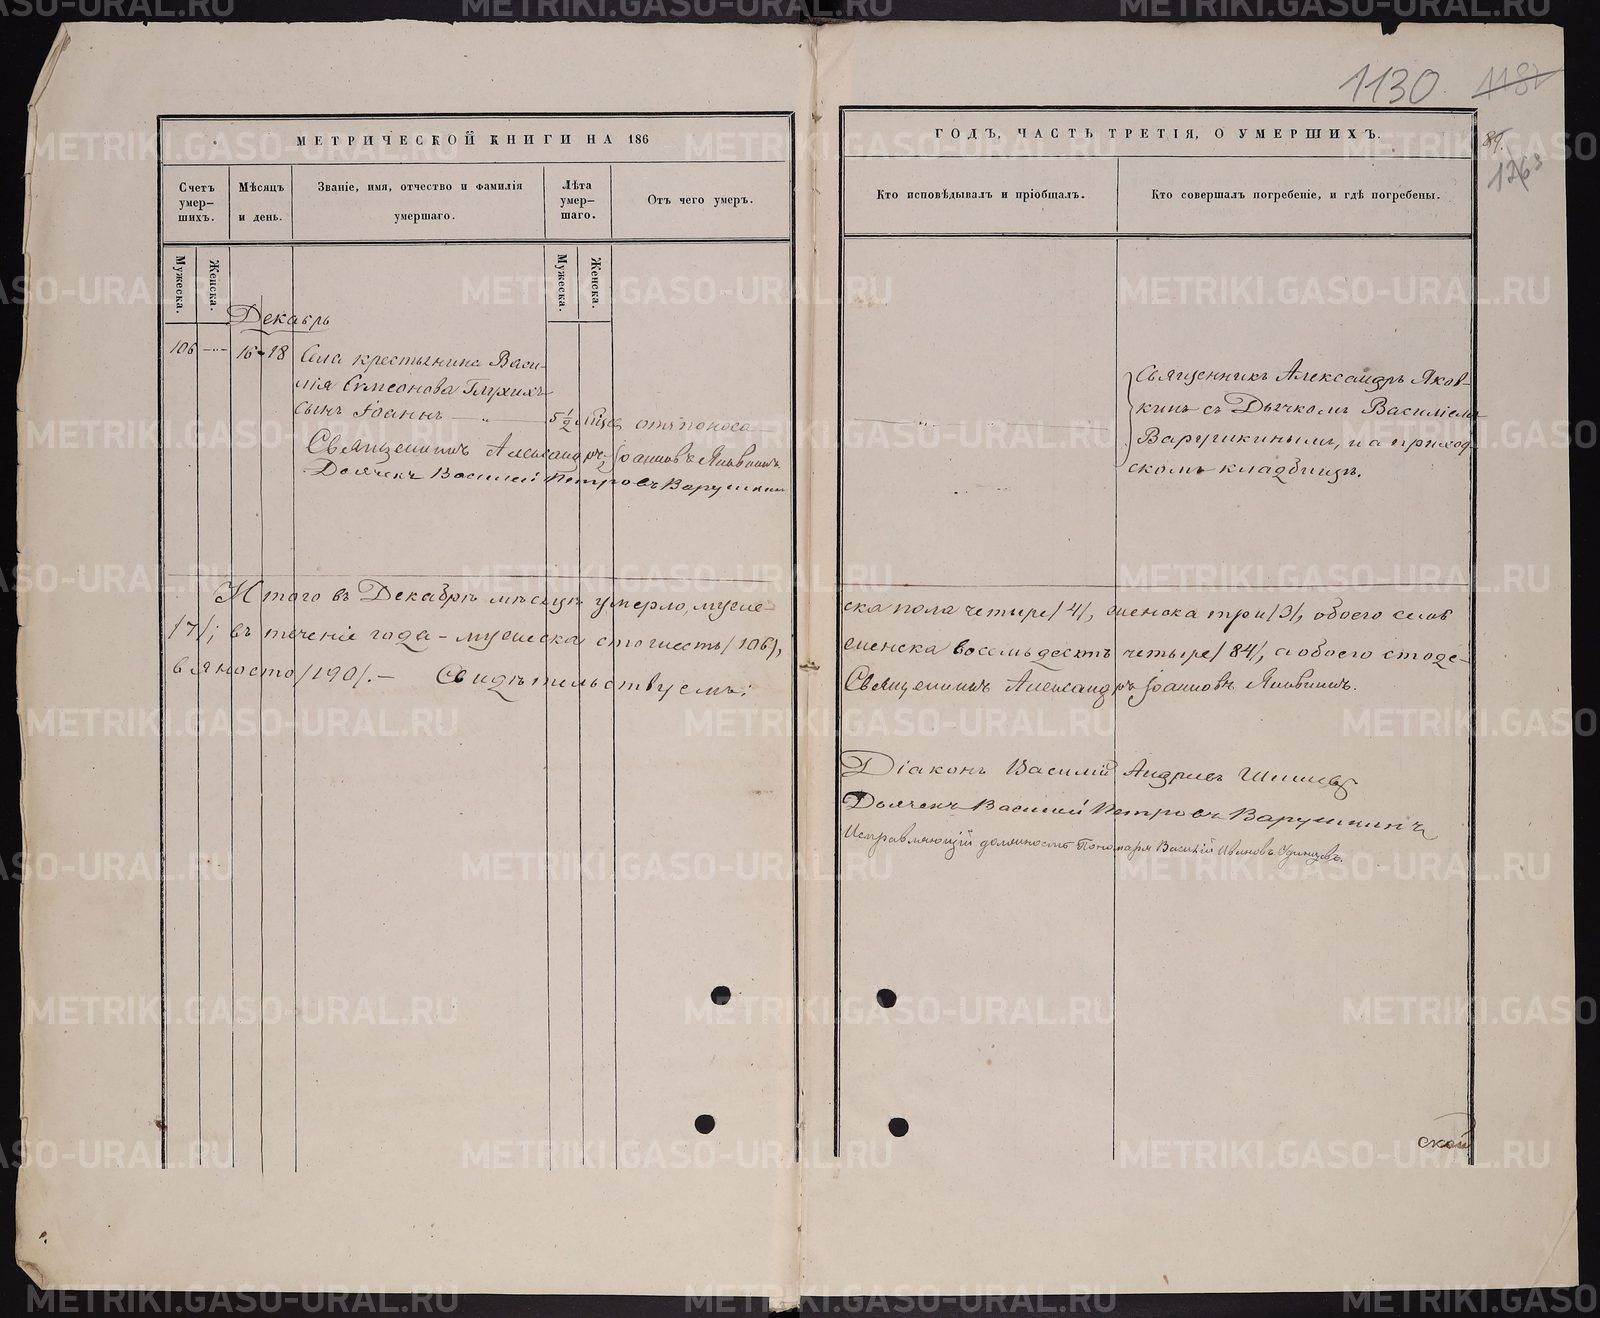 1130 1182
87.
1263
МЕТРИЧЕСКОЙ КНИГИ НА 186
ГОДЪ, ЧАСТЬ ТРЕТІЯ, О УМЕРШИХЪ.
Счетъ умер-шихъ.
Мѣсяцъ и день.
Званіе, имя, отчество и фамилія умершаго.
Лѣта умер-шаго.
Отъ чего умеръ.
Кто исповѣдывалъ и пріобщалъ.
Кто совершалъ погребеніе, и гдѣ погребены.
Мужеска.
Женска.
Мужеска.
Женска.
Декабрь
106 — 16 18 Села крестьянина Васи-
лія Симеонова Глухихъ
сынъ Іоаннъ — 5 1/2 мѣсяц отъ поноса
Священникъ Александръ Іоанновъ Яковкинъ.
Дьячекъ Василій Петровъ Варушкинъ
Священникъ Александръ Яков-
кинъ съ Дьячкомъ Василіемъ
Варушкинымъ, на приход
скомъ кладбищѣ.
Итого въ Декабрѣ мѣсяцѣ умерло, муже-
ска пола четыре /4/, женска три /3/, обоего семь
/7/; въ теченіе года - мужеска сто шесть /106/,
женска восемьдесятъ четыре /84/, а обоего сто де-
вяносто /190/. — Свидѣтельствуемъ:
Священникъ Александръ Іоанновъ Яковкинъ.
Діаконъ Василій Андреевъ
Дьячекъ Василій Петровъ Варушкинъ
Исправляющій должность Пономаря Василій Ивановъ Удинцевъ.
ской
METRIKI.GASO-URAL.RU